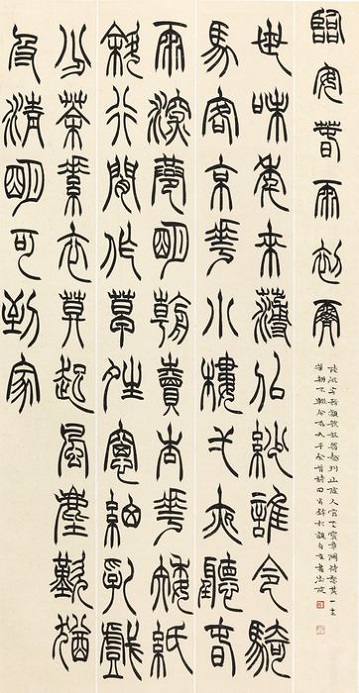 臨安春雨初霽
世味年來薄似紗誰令騎
馬客京華小樓弌夜聽春
雨深巷明朝賣杏花矮紙
斜行閒作草晴窗細乳戲
分茶素衣莫起風塵歎猶
及清明可到家